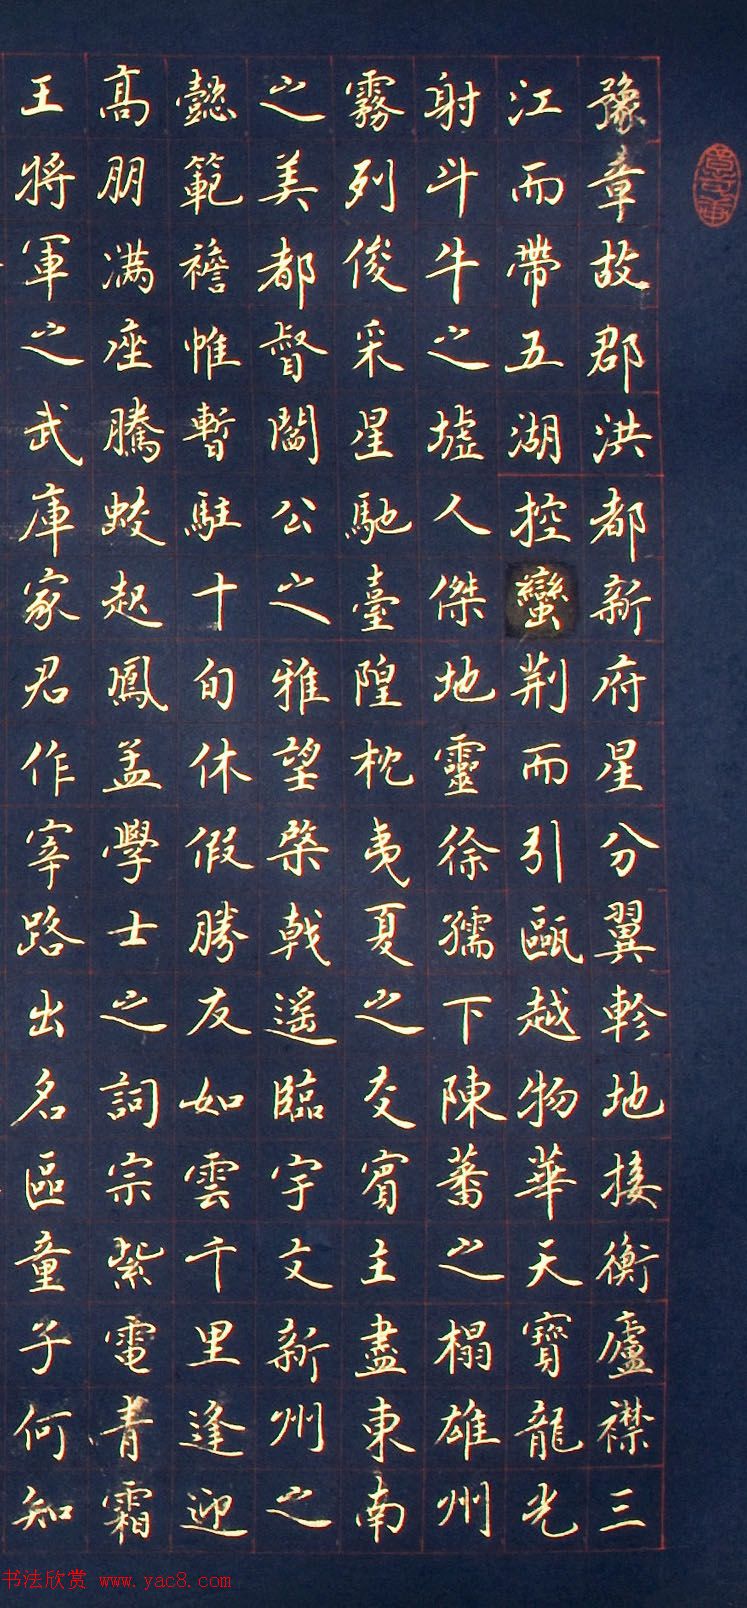 豫章故郡洪都新府星分翼軫地接衡廬襟三
江而帶五湖控蠻荆而引甌越物華天寶龍光
射斗牛之墟人傑地靈徐孺下陳蕃之榻雄州
霧列俊采星馳臺隍枕夷夏之交賓主盡東南
之美都督閻公之雅望棨戟遥臨宇文新州之
懿範襜帷暫駐十旬休假勝友如雲千里逢迎
高朋满座騰蛟起鳳孟學士之詞宗紫電青霜
王將軍之武庫家君作宰路出名區童子何知
书法欣赏 www.yac8.com